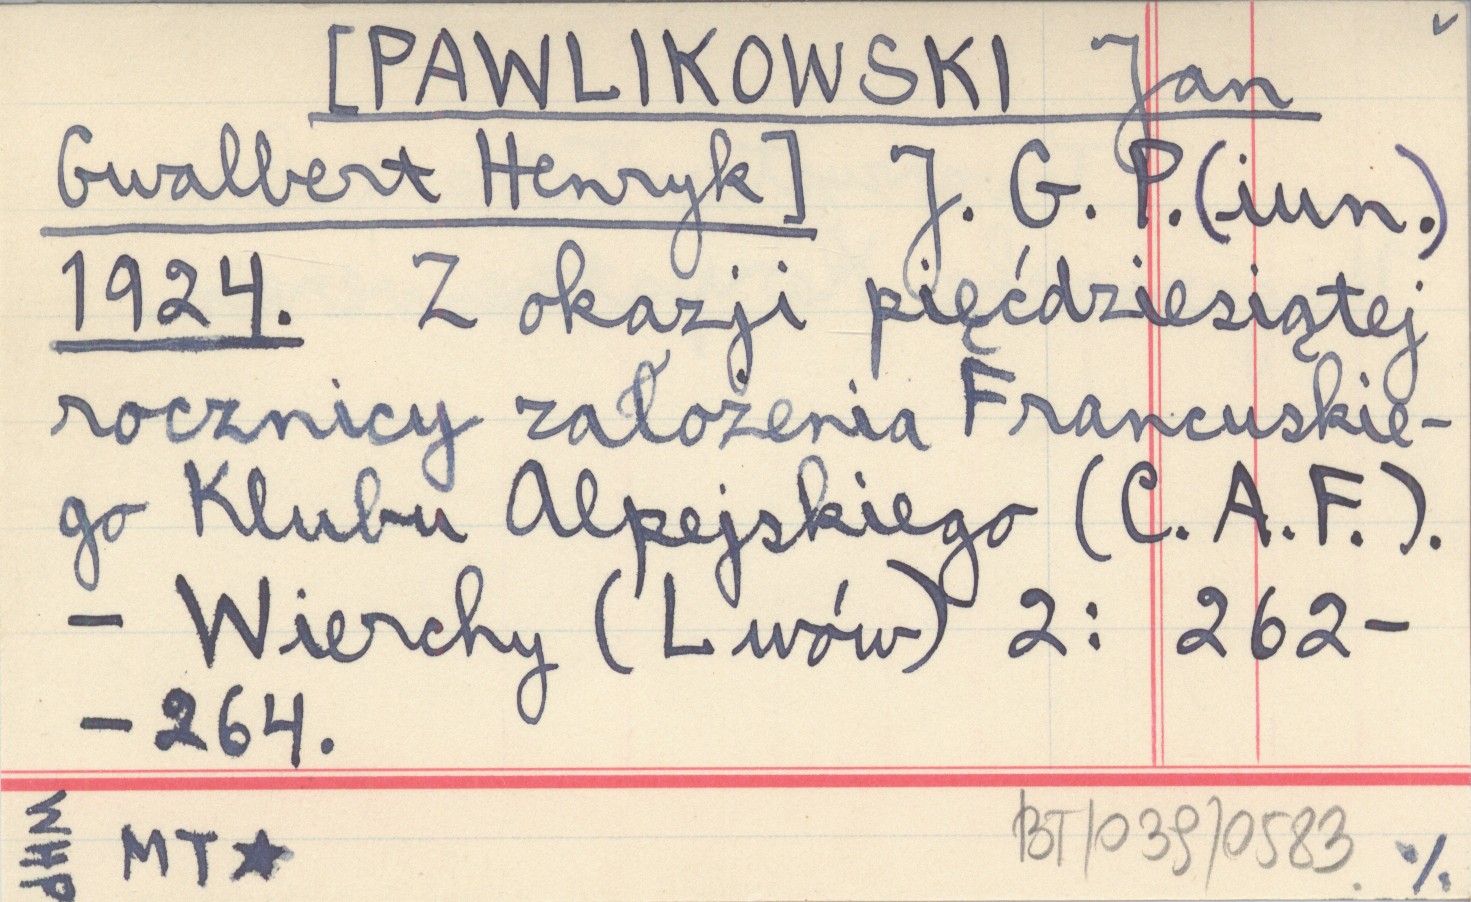 [PAWLIKOWSKI Jan
Gwalbert Henryk] J. G. P. (iun.)
1924. Z okazji pięćdziesiątej
rocznicy założenia Francuskie-
go Klubu Alpejskiego (C. A. F.).
- Wierchy (Lwów) 2: 262-
-264.
WHP
MT★
BT/039/0583.
%